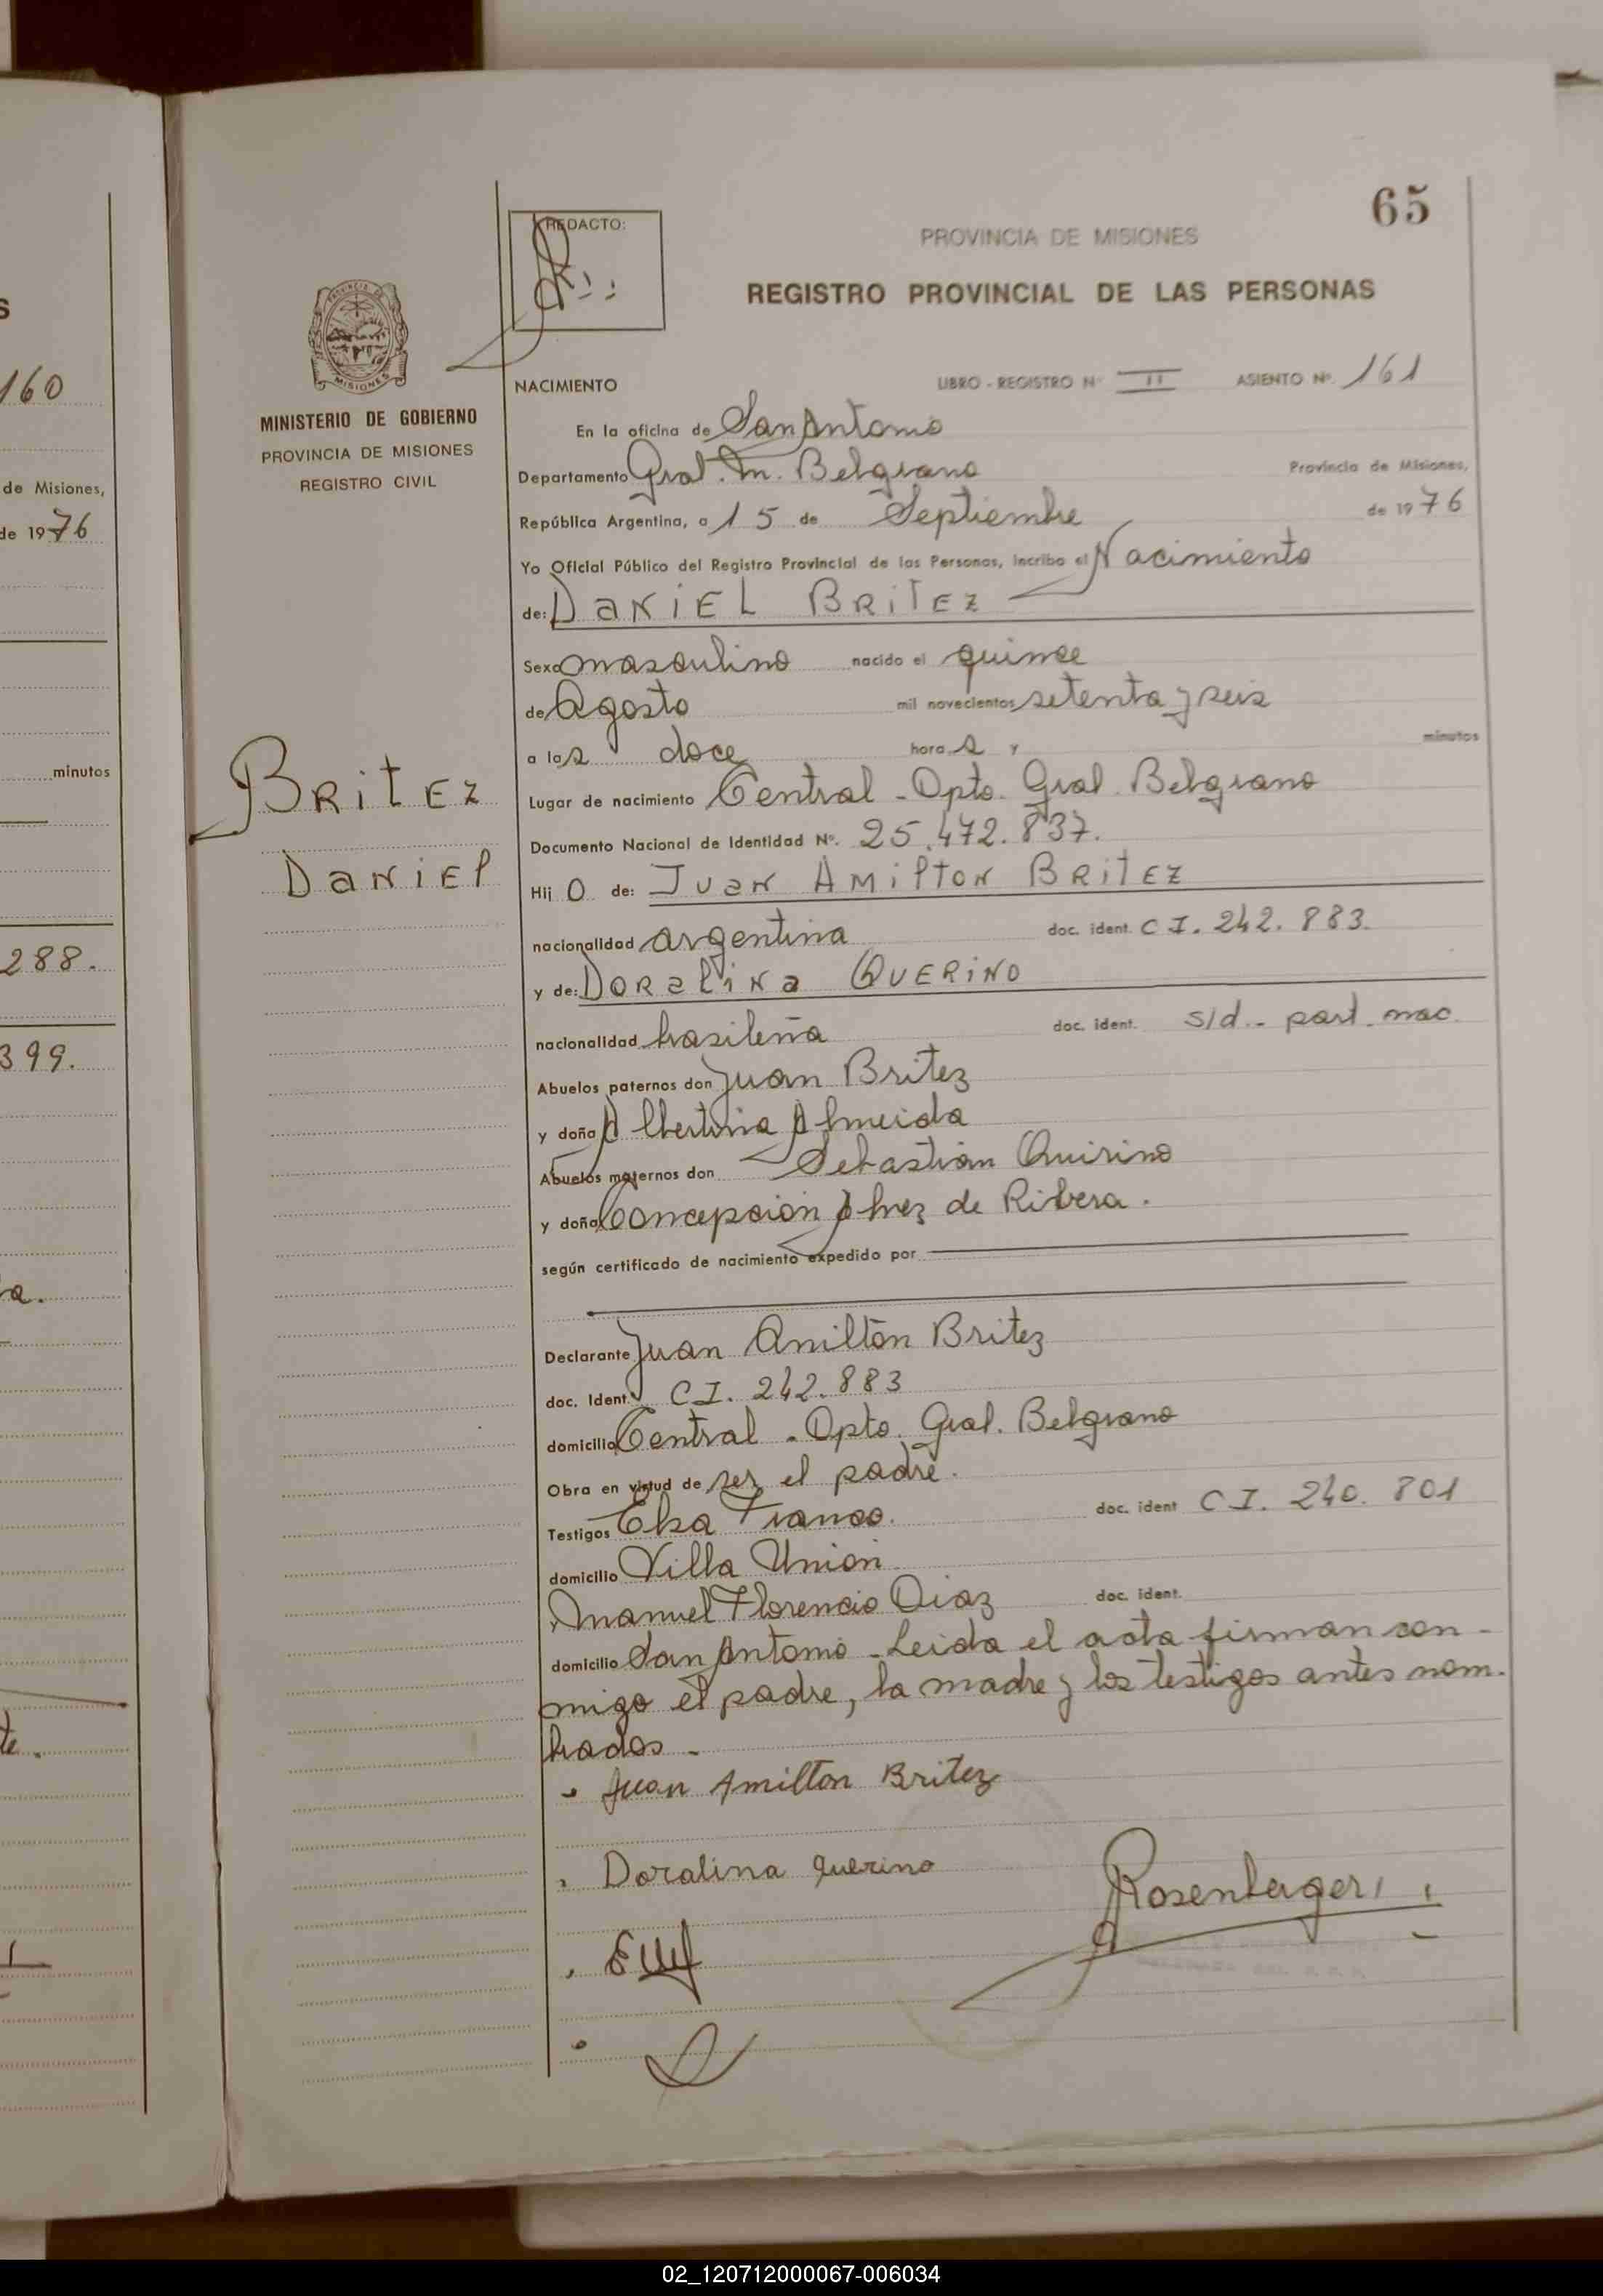 S
160
de Misiones,
de 1976
minutos
288.
399.
a.
te.
65
REDACTO:
PROVINCIA DE MISIONES
REGISTRO PROVINCIAL DE LAS PERSONAS
PROVINCIA DE
MISIONES
MINISTERIO DE GOBIERNO
PROVINCIA DE MISIONES
REGISTRO CIVIL
Britez
Daniel
NACIMIENTO LIBRO - REGISTRO Nº II ASIENTO Nº. 161
En la oficina de San Antonio
Departamento Gral. M. Belgrano Provincia de Misiones,
República Argentina, a 15 de Septiembre de 1976
Yo Oficial Público del Registro Provincial de las Personas, incribo el Nacimiento
de: Daniel Britez
Sexo masculino nacido el quince
de Agosto mil novecientos setenta y seis
a las doce horas y minutos
Lugar de nacimiento Central - Dpto. Gral. Belgrano
Documento Nacional de Identidad Nº. 25.472.837.
Hijo de: Juan Amilton Britez
nacionalidad argentina doc. ident. C I. 242.883.
y de: Doralina Querino
nacionalidad brasileña doc. ident. s/d.- part. nac.
Abuelos paternos don Juan Britez
y doña Albertina Almeida
Abuelos maternos don Sebastián Quirino
y doña Concepción de Ribera.
según certificado de nacimiento expedido por
Declarante Juan Anilton Britez
doc. Ident. C I. 242.883
domicilio Central - Dpto. Gral. Belgrano
Obra en virtud de ser el padre.
Testigos Elsa Franco. doc. ident C I. 240.801
domicilio Villa Unión
Manuel Florencio Diaz doc. ident.
domicilio San Antonio - Leida el acta firman con-
migo el padre, la madre y los testigos antes nom-
brados -
Juan Amilton Britez
Doralina Querino
Rosenberger
02_120712000067-006034